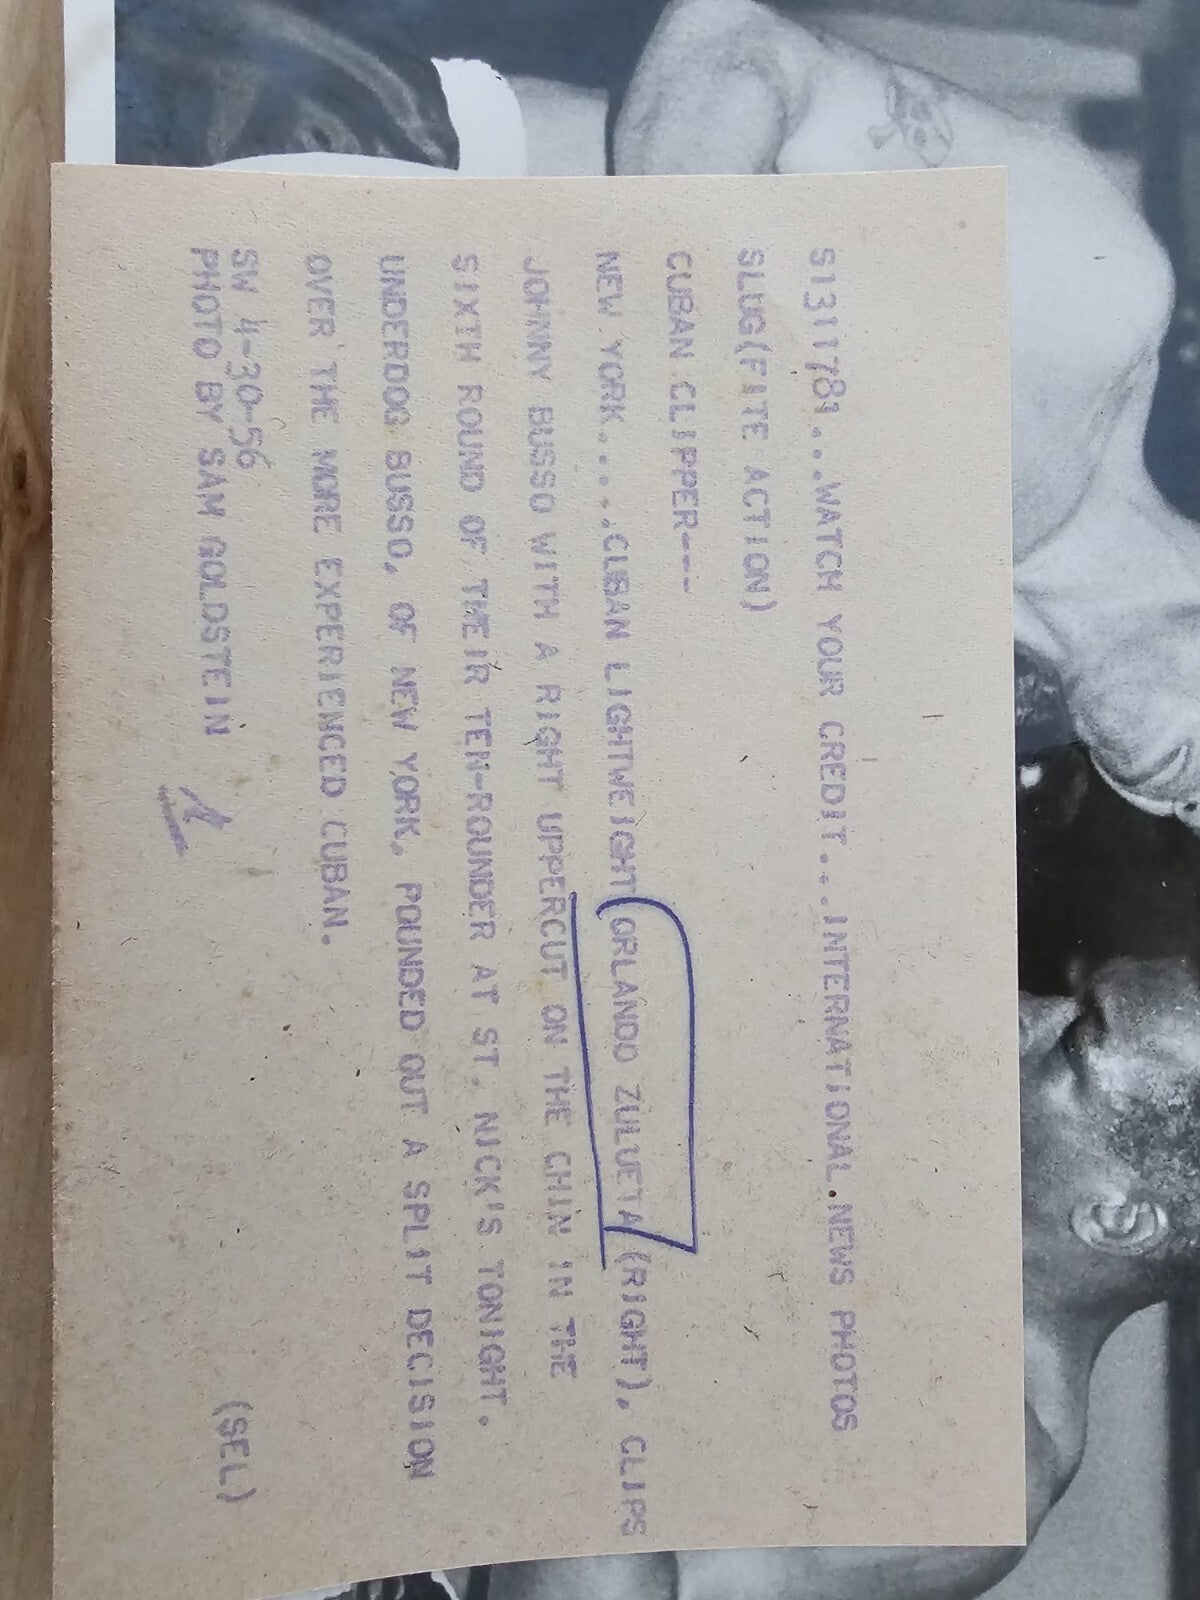 S1311781...WATCH YOUR CREDIT...INTERNATIONAL NEWS PHOTOS
SLUG(FITE ACTION)
CUBAN CLIPPER---
NEW YORK.....CUBAN LIGHTWEIGHT ORLANDO ZULUETA (RIGHT), CLIPS
JOHNNY BUSSO WITH A RIGHT UPPERCUT ON THE CHIN IN THE
SIXTH ROUND OF THEIR TEN-ROUNDER AT ST. NICK'S TONIGHT.
UNDERDOG BUSSO, OF NEW YORK, POUNDED OUT A SPLIT DECISION
OVER THE MORE EXPERIENCED CUBAN.
SW 4-30-56 (SEL)
PHOTO BY SAM GOLDSTEIN